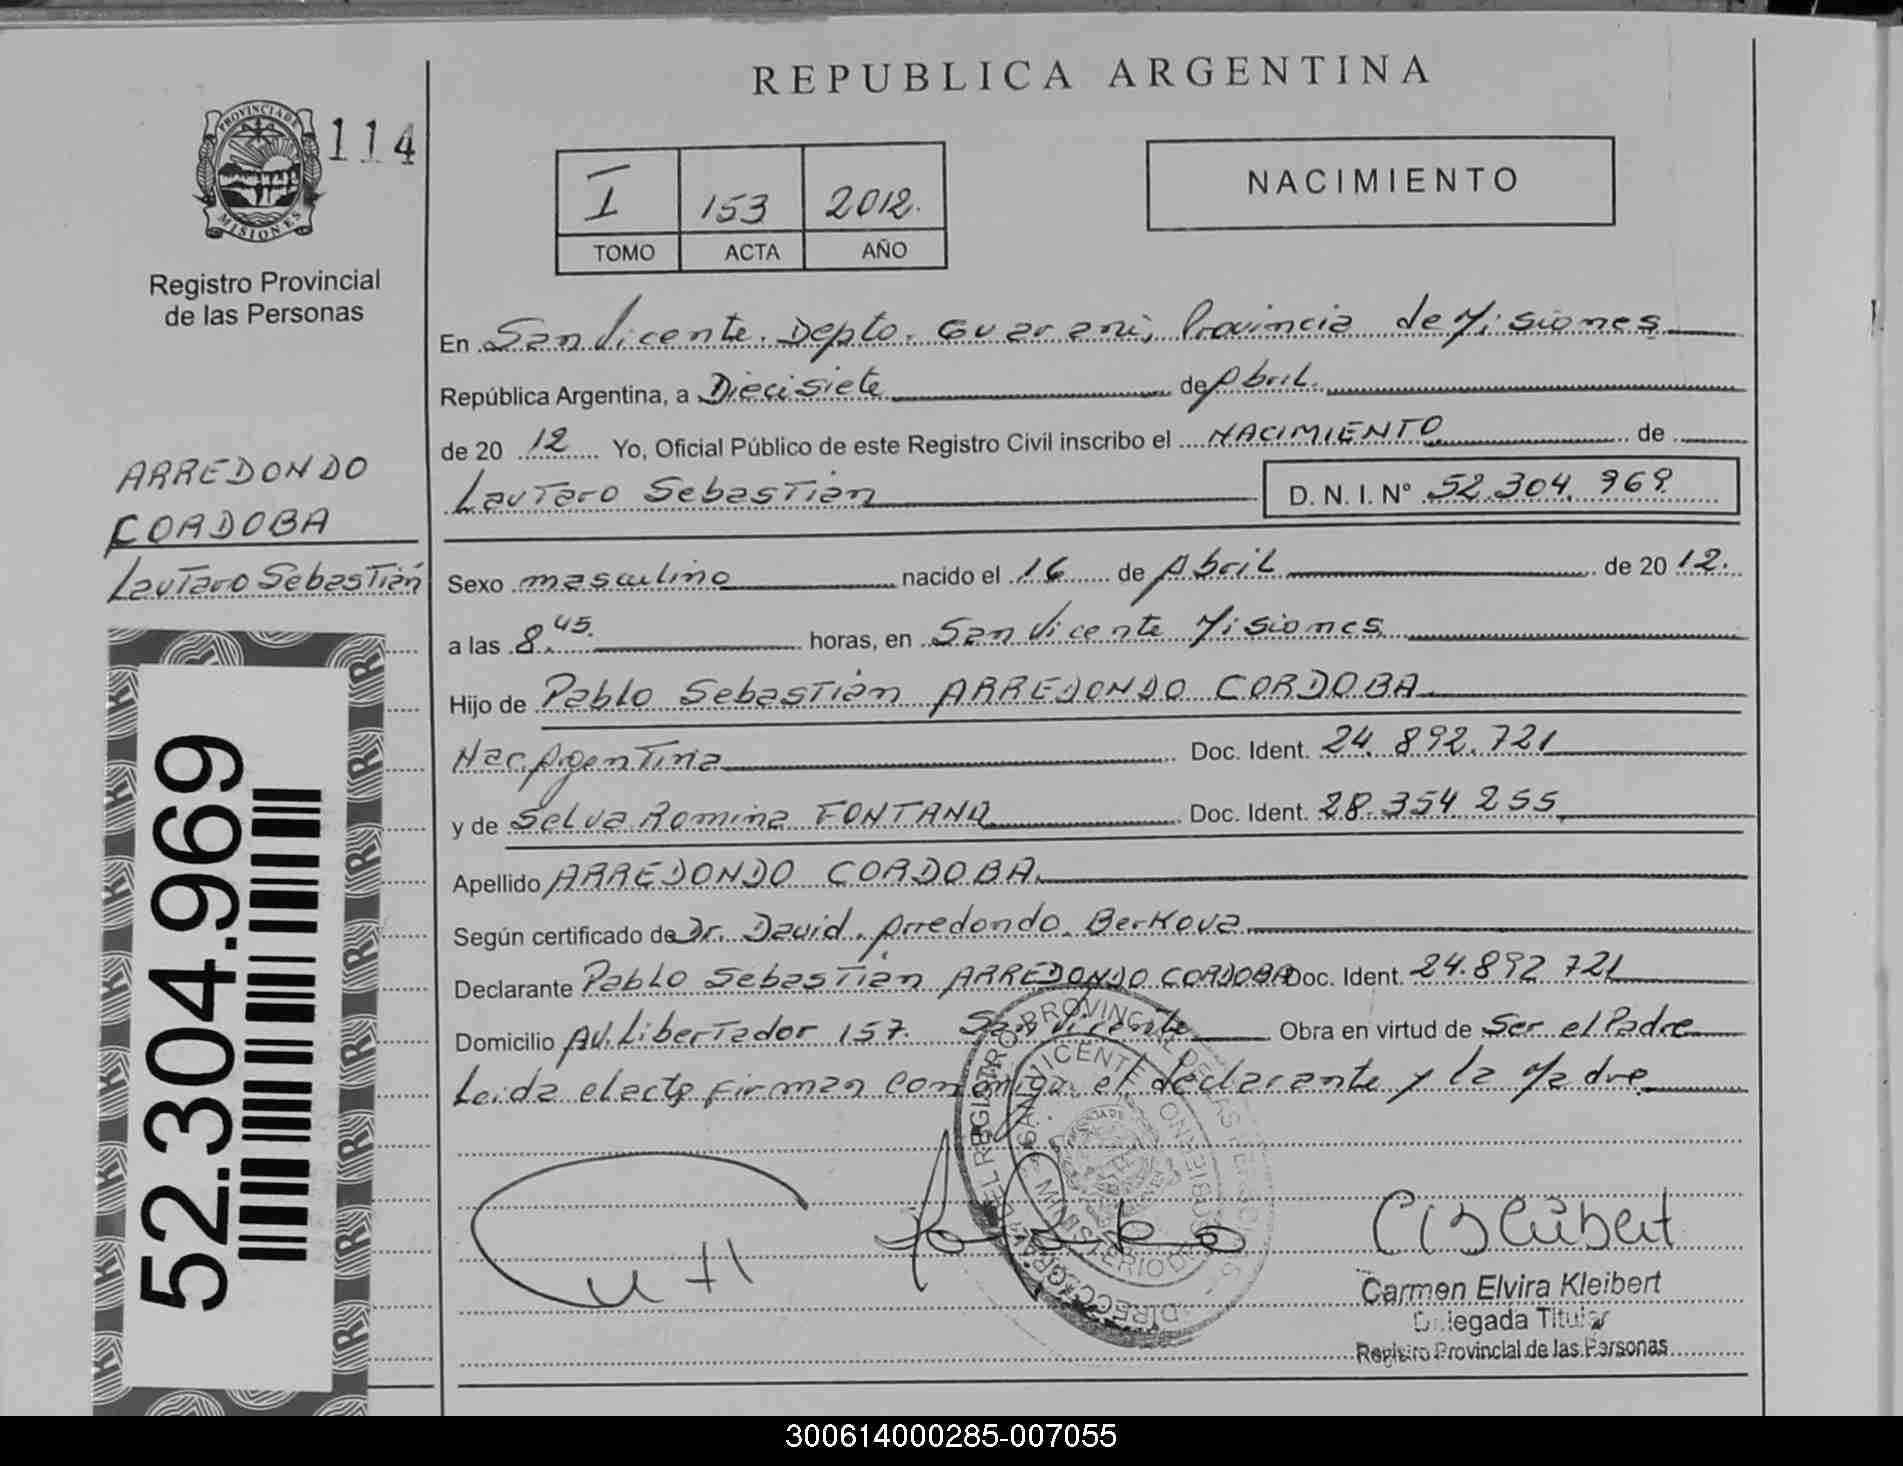 REPUBLICA ARGENTINA
PROVINCIA DE MISIONES
114
Registro Provincial
de las Personas
I 153 2012.
TOMO ACTA AÑO
NACIMIENTO
ARREDONDO
CORDOBA
Lautaro Sebastián
52.304.969
En San Vicente. Depto. Guarani, Provincia de Misiones
República Argentina, a Diecisiete de Abril.
de 20 12 Yo, Oficial Público de este Registro Civil inscribo el NACIMIENTO de
Lautaro Sebastián D. N. I. N° 52.304.969
Sexo masculino nacido el 16 de Abril de 20 12.
a las 8.45. horas, en San Vicente Misiones
Hijo de Pablo Sebastián ARREDONDO CORDOBA
Nac. Argentina Doc. Ident. 24.892.721
y de Selva Romina FONTANA Doc. Ident. 28.354.255
Apellido ARREDONDO CORDOBA.
Según certificado de Dr. David Arredondo Berkova
Declarante Pablo Sebastián ARREDONDO CORDOBA Doc. Ident. 24.892 721
Domicilio Av. Libertador 157. San Vicente Obra en virtud de Ser el Padre
Leida el acta firman conmigo el declarante y la Madre
Carmen Elvira Kleibert
Delegada Titular
Registro Provincial de las Personas
300614000285-007055